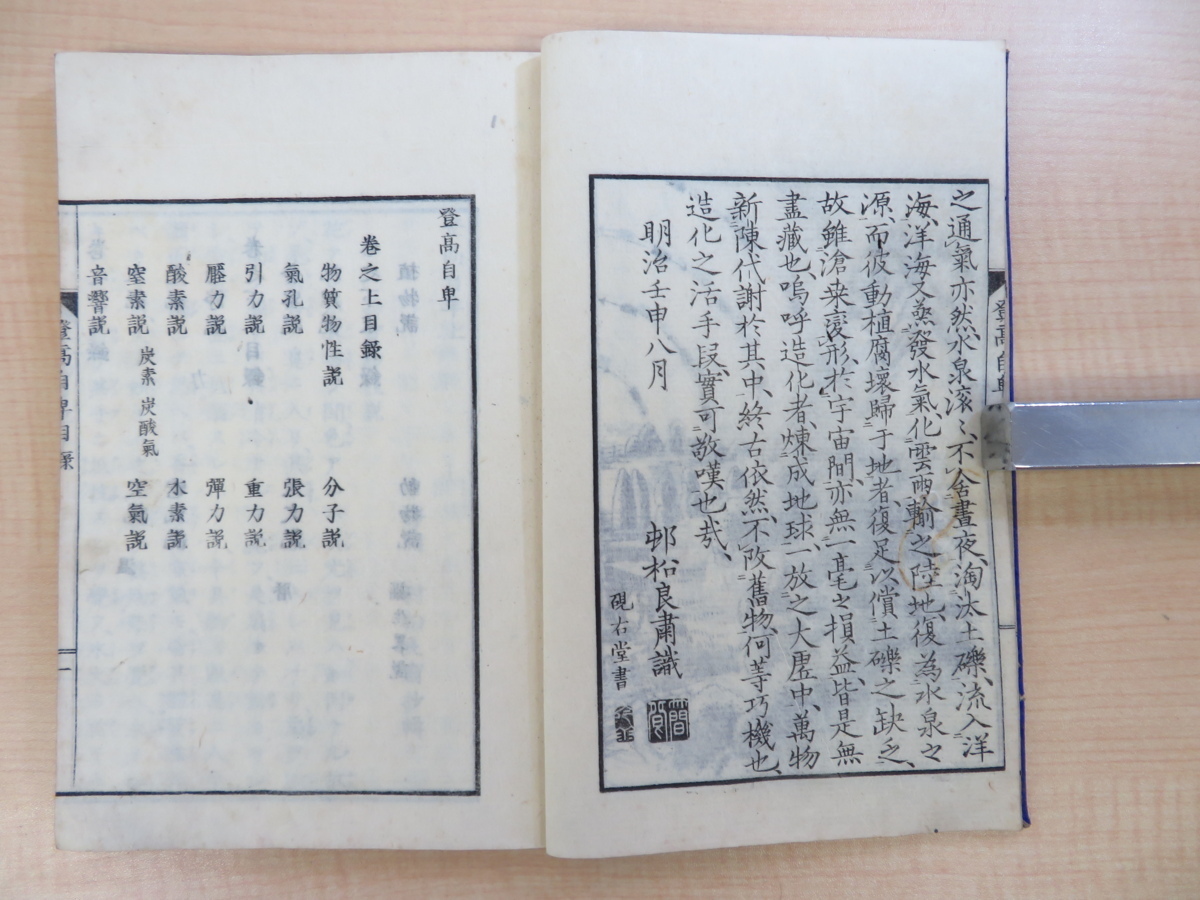 之通氣亦然、水泉滾〻、不舍晝夜、淘汰土礫、流入洋
海、洋海又蒸發水氣、化雲雨、輸之陸地、復為水泉之
源、而彼動植腐壞歸于地者、復足以償土礫之缺乏、
故雖滄桒變形於宇宙間、亦無一毫之損益、皆是無
盡藏也、嗚呼造化者、煉成地球、一放之大虛中、萬物
新陳代謝於其中、終古依然、不改舊物、何等巧機也、
造化之活手段、實可敬嘆也哉、
明治壬申八月
邨松良肅識
硯右堂書
登高自卑
登高自卑
卷之上目錄
物質物性説 分子説
氣孔説 張力説
引力説 重力説
壓力説 彈力説
酸素説 水素説
窒素説 炭素 炭酸氣 空氣説
音響説
登高自卑目錄
一